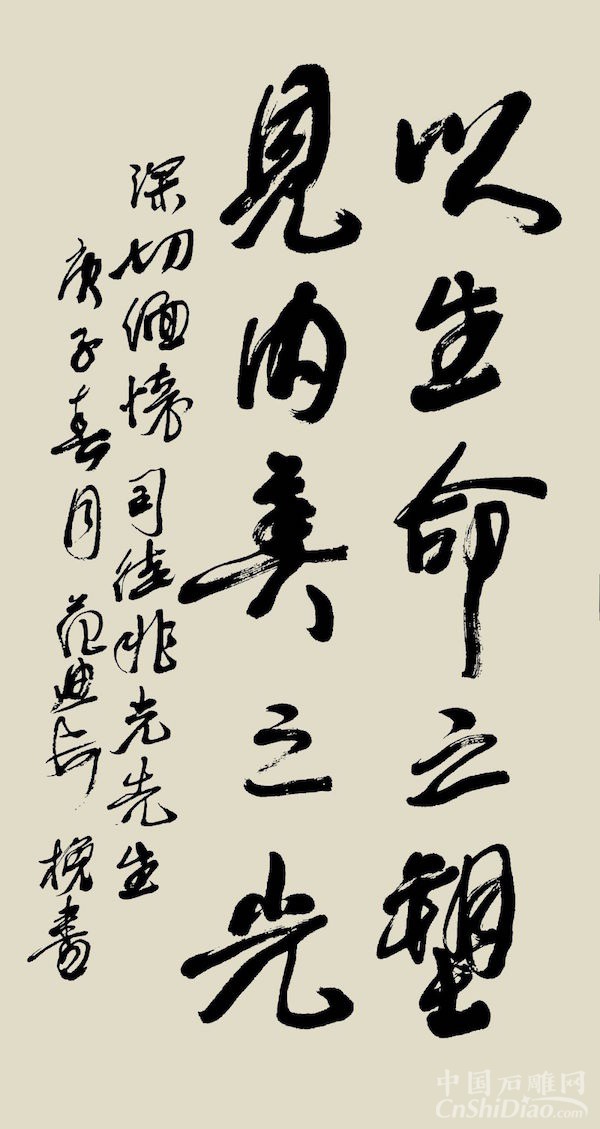 以生命之塑
見内美之光
深切缅懷司徒兆光先生
庚子春月 范迪安 挽書
中国石雕网
CnShiDiao.com